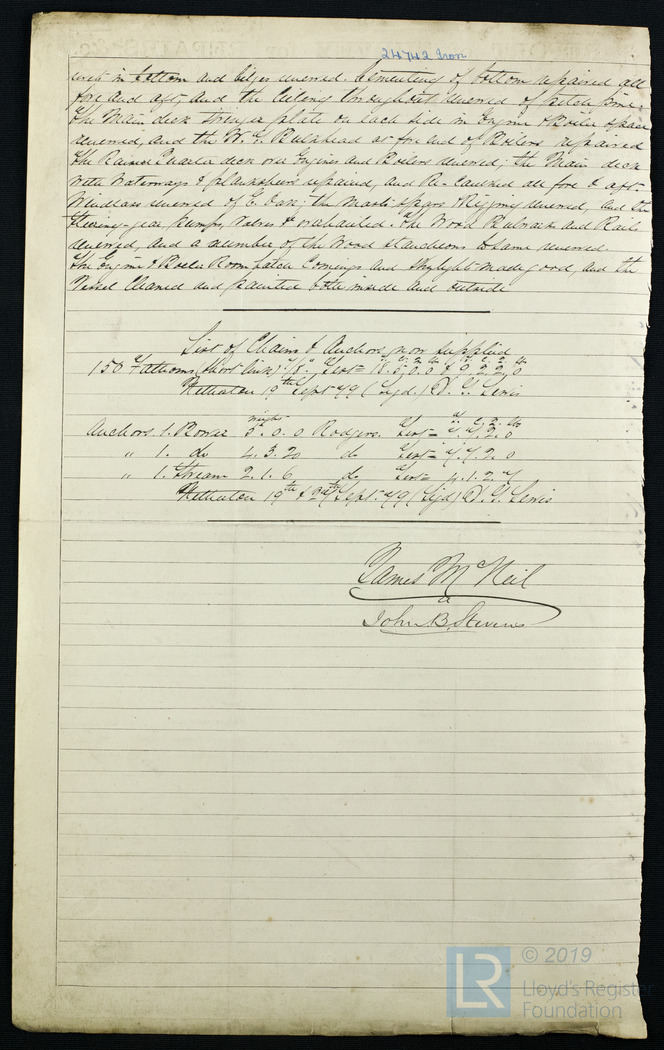 24742 Iron
in bottom and bilges renewed. Cementing of bottom repaired all
fore and aft, and the Ceiling throughout renewed of pitch pine.
The Main deck Stringer plate on each side in Engine & Boiler space
renewed, and the W. T. Bulkhead at fore end of Boilers repaired
The Raised Quarter deck over Engines and Boilers renewed; the Main deck
with Waterways & planksheers repaired, and Re-Caulked all fore & aft.
Windlass renewed of E. Oak; the Masts Spars & Rigging renewed, and the
Steering-gear, pumps, valves & overhauled. The Wood Bulwarks and Rails
renewed, and a number of the Wood Stancheons to same renewed.
The Engine & Boiler Room hatch Comings and Skylight made good, and the
Vessel Cleaned and painted both inside and outside
List of Chains & Anchors now supplied
150 Fathoms (Short link) Test = 18.5.0.0 & 9.2.2.0
Netherton 19th Sept 79 (Sigd.) D. G. Lewis
Weight
Anchors. 1. Bower 5.0.0 Rodgers. Test = 7.7.2.0
" 1. do 4.3.20 do Test = 7.7.2.0
" 1. Stream 2.1.6 do Test = 4.1.2.7
Netherton 19th & Sept. 79 (Sigd) D. G. Lewis
James McNeil
a
John B. Stevens
© 2019
LR
Lloyd's Register
Foundation